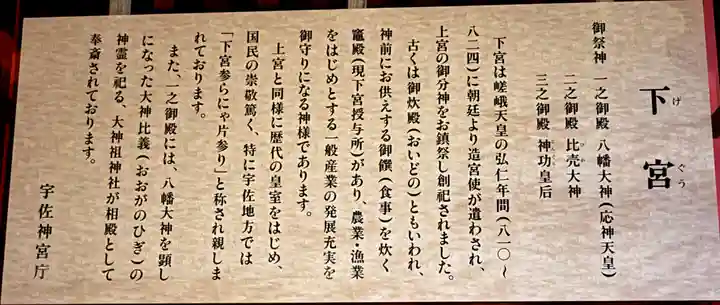 下宮
げ ぐう
御祭神 一之御殿 八幡大神(応神天皇)
二之御殿 比売大神
三之御殿 神功皇后
下宮は嵯峨天皇の弘仁年間(八一〇～
八二四)に朝廷より造宮使が遣わされ、
上宮の御分神をお鎮祭し創祀されました。
古くは御炊殿(おいどの)ともいわれ、
神前にお供えする御饌(食事)を炊く
竈殿(現下宮授与所)があり、農業・漁業
をはじめとする一般産業の発展充実を
御守りになる神様であります。
上宮と同様に歴代の皇室をはじめ、
国民の崇敬篤く、特に宇佐地方では
「下宮参らにゃ片参り」と称され親しま
れております。
また、一之御殿には、八幡大神を顕し
になった大神比義(おおがのひぎ)の
神霊を祀る、大神祖神社が相殿として
奉斎されております。
宇佐神宮庁